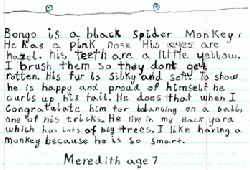 Bongo is a black spider monkey.
He has a pink nose His eyes are
hazel. his teeth are a little yellow.
I brush them so they dont get
rotten. His fur is silky and soft. To show
he is happy and proud of himself he
curls up his tail. He does that when I
congratulate him for balancing on a ball,
one of his tricks. He live in my back yard
which has lots of big trees. I like having a
monkey because he is so smart.
Meredith age 7